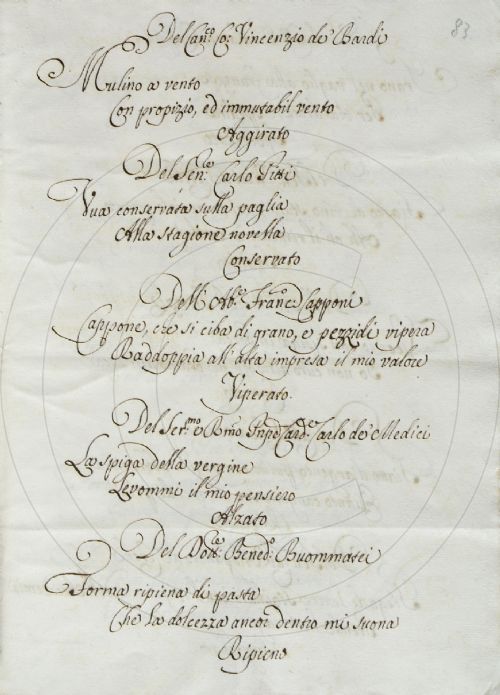 83
Del Can.co Co: Vincenzio de' Bardi
Mulino a vento
Con propizio, ed immutabil vento
Aggirato
Del Sen.re Carlo Pitti
Vua conservata sulla paglia
Alla stagione novella
Conservato
Dell'Ab.e Franc.o Capponi
Cappone, che si ciba di grano, e pezzi di vipera
Raddoppia all'alta impresa il mio valore
Viperato.
Del Ser.mo e Rmo Card.e Carlo de' Medici
La spiga della vergine
Levommi il mio pensiero
Alzato
Del Dott.re Bened.o Buommatei
Forma ripiena di pasta
Che la dolcezza ancor dentro mi suona
Ripieno